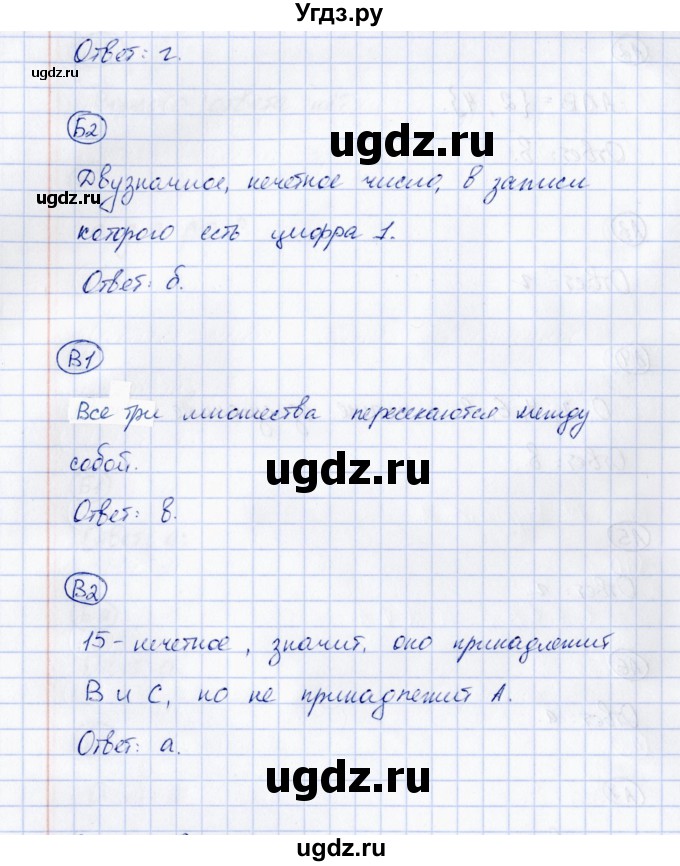 Угдз.ру
Ответ: г.
ugdz.ru
Б2
ugdz.ru
Двузначное, нечетное число, в записи
ugdz.ru
которого есть цифра 1.
Ответ: б.
В1
Все три множества пересекаются между
собой.
ugdz.ru
Ответ: в.
В2
15 - нечетное, значит, оно принадлежит
ugdz.ru
В и С, но не принадлежит А.
Ответ: а.
ugdz.ru
ugdz.ru